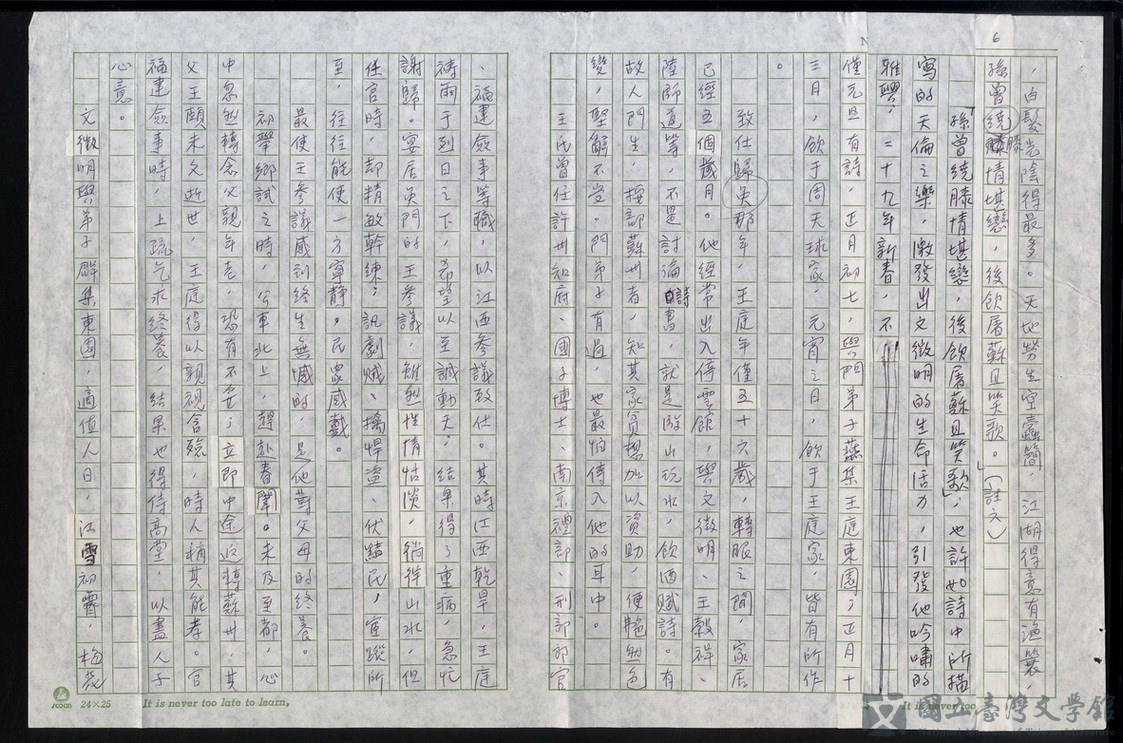 6
，白髮光陰得最多。天地勞生空蠹簡，江湖得意有漁簑，
孫曾繞膝情堪戀，後飲屠蘇且笑歌。」（註六）
「孫曾繞膝情堪戀，後飲屠蘇且笑歌」；也許如詩中所描
寫的天倫之樂，激發出文徵明的生命活力，引發他吟嘯的
雅興；二十九年新春，不
僅元旦有詩，正月初七，與門弟子燕集王庭東園；正月十
三月，飲于周天球家，元宵之日，飲于王庭家，皆有所作
。
致仕歸吳那年，王庭年僅五十六歲，轉眼之間，家居
已經五個歲月。他經常出入停雲館，與文徵明、王穀祥、
陸師道等，不是討論詩書，就是遊山玩水，飲酒賦詩。有
故人門生，按部蘇州者，知其家貧想加以資助，便艴然色
變，堅辭不受。門弟子有過，也最怕傳入他的耳中。
王氏曾任許州知府、國子博士、南京禮部、刑部郎官
、福建僉事等職，以江西參議致仕。其時江西乾旱，王庭
禱雨于烈日之下，希望以至誠動天；結果得了重病，急忙
謝歸。宴居吳門的王參議，雖然性情恬淡，徜徉山水，但
任官時，卻精敏幹練；訊劇賊、擒悍盜、伏黠民，宦蹤所
至，往往能使一方寧靜，民眾感戴。
最使王參議感到終生無憾的，是他對父母的終養。
初舉鄉試之時，公車北上，趕赴春闈。未及至都，心
中忽然轉念父親年老，恐有不妥；立即中途返轉蘇州，其
父王頤未久逝世，王庭得以親視含殮，時人稱其能孝。官
福建僉事時，上疏乞求終養，結果也得侍高堂，以盡人子
心意。
文徵明與弟子群集東園，適值人日，江雪初霽，梅蕊
24×25
It is never too late to learn,
It is never too
國立臺灣文學館